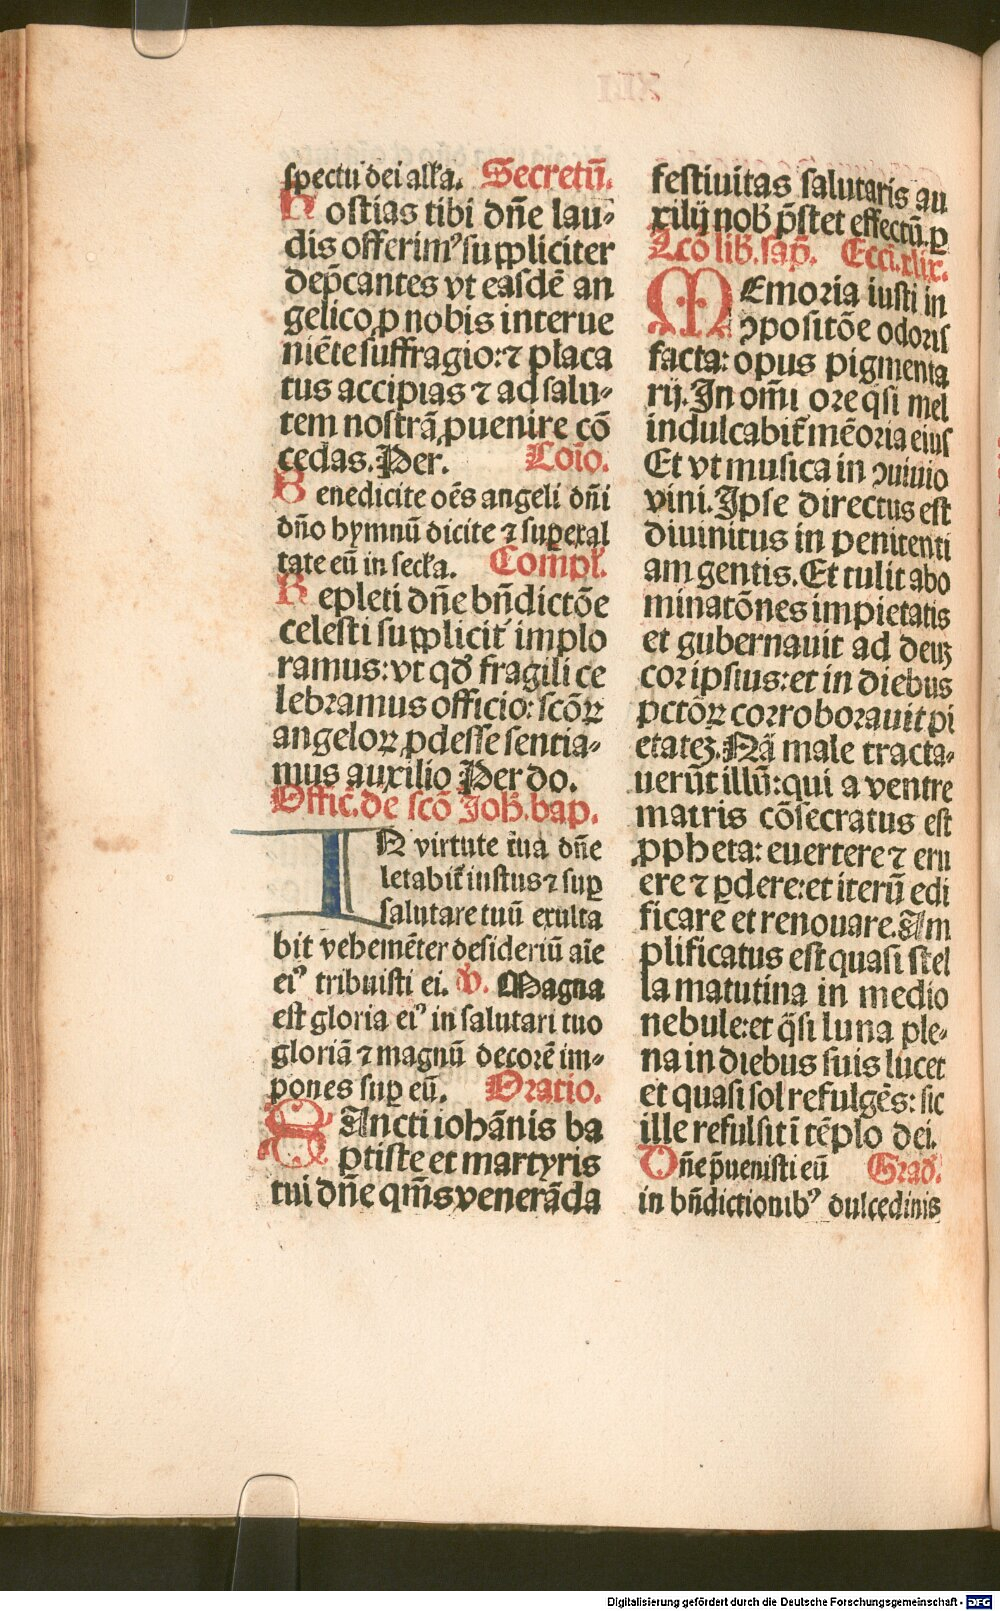 spectu dei alľa. Secretū.
Hostias tibi dn̄e lau⸗
dis offerimꝰ suppliciter
dep̄cantes vt easdē an
gelico ꝓ nobis interue
niēte suffragio: ⁊ placa
tus accipias ⁊ ad salu⸗
tem nostrā ꝑuenire cō
cedas. Per. Coīo.
Benedicite oēs angeli dn̄i
dn̄o hymnū dicite ⁊ suꝑexal
tate eū in secľa. Compľ.
Repleti dn̄e bn̄dictōe
celesti supplicit̄ implo
ramus: vt qd̄ fragili ce
lebramus officio: scōꝝ
angeloꝝ ꝓdesse sentia⸗
mus auxilio Per do.
Offic̄. de scō Joh̄. bap.
IN virtute tua dn̄e
letabit̄ iustus ⁊ suꝑ
salutare tuū exulta
bit vehemēter desideriū aīe
eiꝰ tribuisti ei. V. Magna
est gloria eiꝰ in salutari tuo
gloriā ⁊ magnū decorē im⸗
pones suꝑ eū. Oratio.
SAncti iohānis ba
ptiste et martyris
tui dn̄e qm̄s venerāda
festiuitas salutaris au
xilij nob̄ p̄stet effectū. ꝑ
Lcō lib̄. sap̄. Ecci. xlix.
MEmoria iusti in
ꝯpositōe odoris
facta: opus pigmenta
rij. In om̄i ore q̄si mel
indulcabit̄ mēoria eius
Et vt musica in ꝯuiuio
vini. Ipse directus est
diuinitus in penitenti
am gentis. Et tulit abo
minatōnes impietatis
et gubernauit ad deuꝫ
cor ipsius: et in diebus
pctōꝝ corroborauit pi
etateꝫ. Nā male tracta⸗
uerūt illū: qui a ventre
matris cōsecratus est
ꝓpheta: euertere ⁊ eru
ere ⁊ ꝑdere: et iterū edi
ficare et renouare. Am
plificatus est quasi stel
la matutina in medio
nebule: et q̄si luna ple⸗
na in diebus suis lucet
et quasi sol refulgēs: sic
ille refulsit ī tēplo dei.
Dn̄e p̄uenisti eū Grad̄.
in bn̄dictionibꝰ dulcedinis
Digitalisierung gefördert durch die Deutsche Forschungsgemeinschaft - DFG